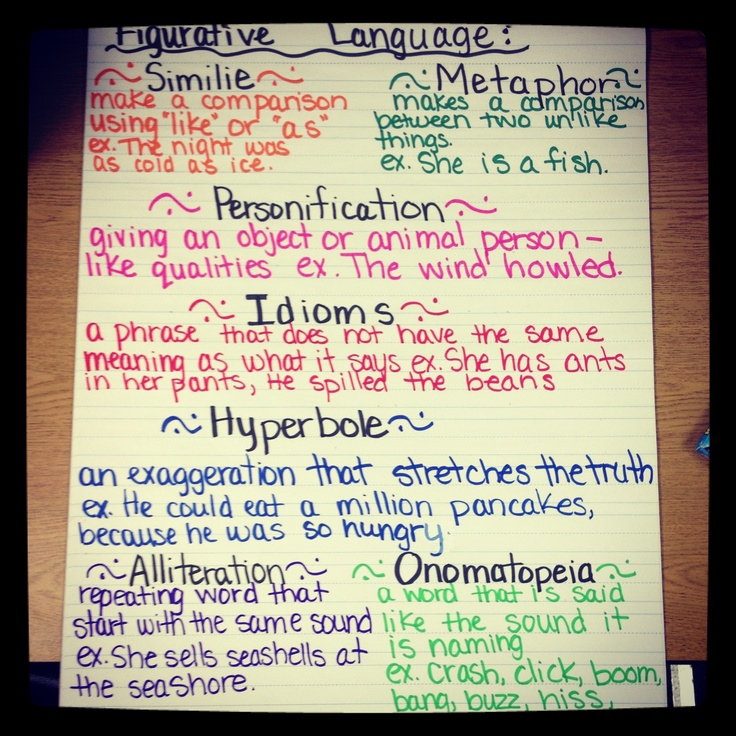 Figurative Language:
Similie
make a comparison
using "like" or "as"
ex. The night was
as cold as ice.
Metaphor
makes a comparison
between two unlike
things.
ex. She is a fish.
Personification
giving an object or animal person-
like qualities ex. The wind howled.
Idioms
a phrase that does not have the same
meaning as what it says ex. She has ants
in her pants, He spilled the beans
Hyperbole
an exaggeration that stretches the truth
ex. He could eat a million pancakes,
because he was so hungry.
Alliteration
repeating word that
start with the same sound
ex. She sells seashells at
the seashore.
Onomatopeia
a word that is said
like the sound it
is naming
ex. crash, click, boom,
bang, buzz, hiss,